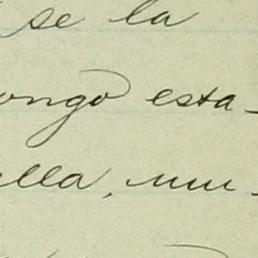 se la
ongo esta-
lla, mu-